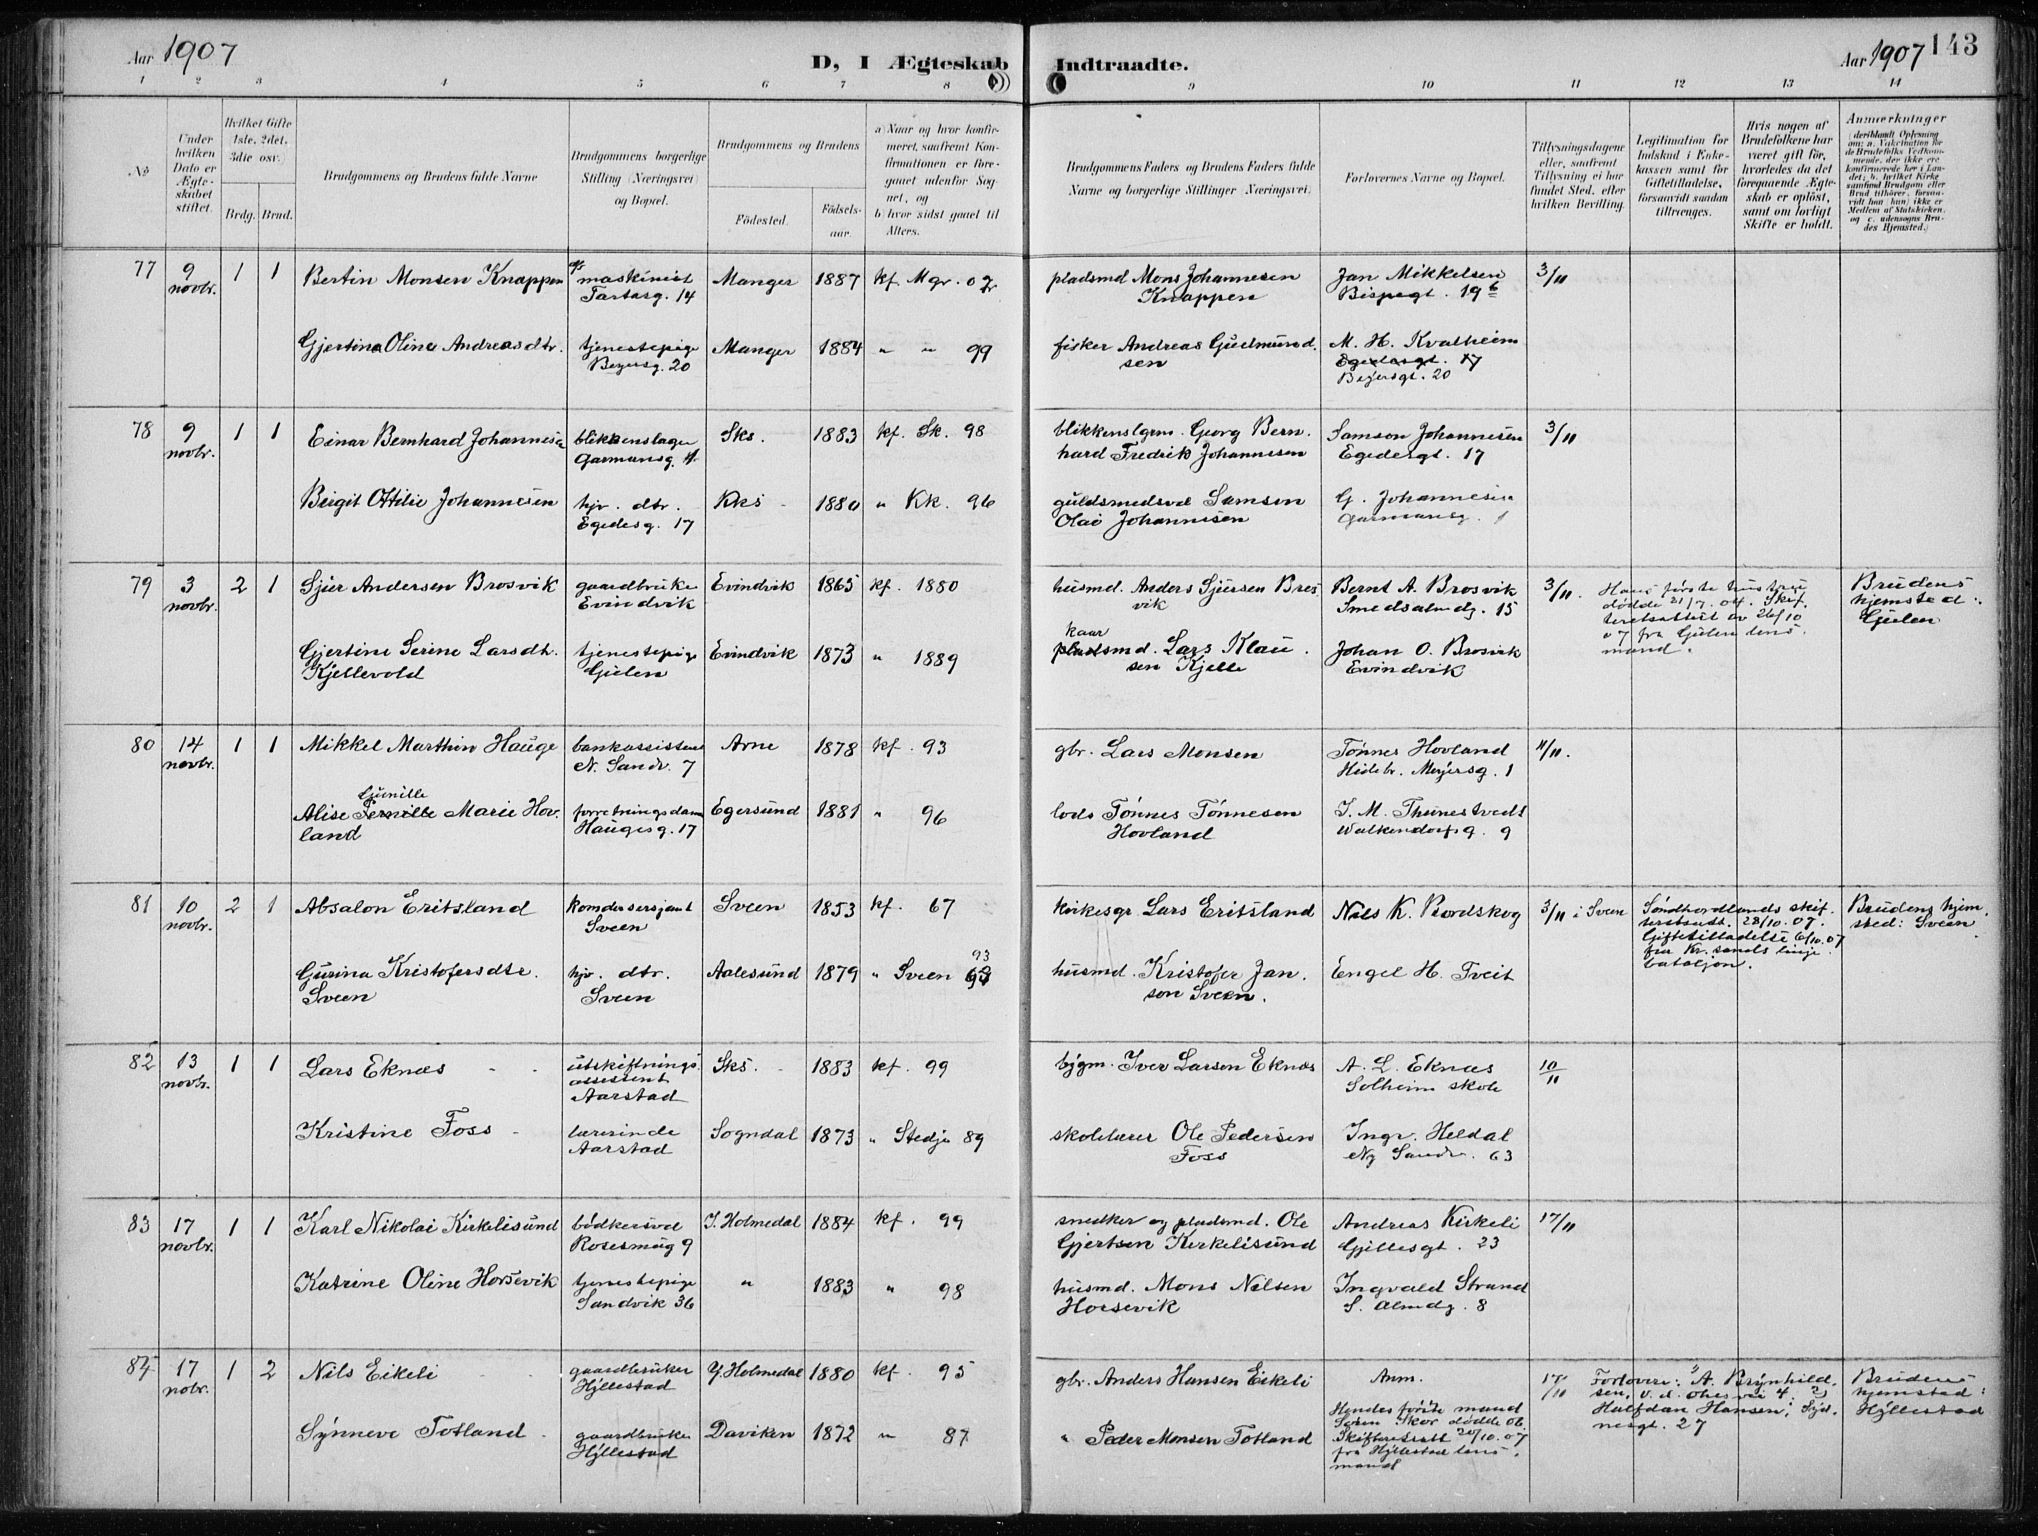 Aar 1907
D, I Ægteskab Indtraadte.
Aar 1907 143
1 2 3 4 5 6 7 8 9 10 11 12 13 14
No
Under hvilken Dato er Ægteskabet stiftet.
Hvilket Gifte 1ste, 2det, 3die osv.)
Brdg. Brud.
Brudgommens og Brudens fulde Navne
Brudgommens borgerlige Stilling (Næringsvei) og Bopæl.
Brudgommens og Brudens
Födested.
Födsels-aar.
a) Naar og hvor konfirmeret, saafremt Konfirmationen er foregaaet udenfor Sognet, og
b) hvor sidst gaaet til Alters.
Brudgommens Faders og Brudens Faders fulde Navne og borgerlige Stillinger (Næringsvei).
Forlovernes Navne og Bopæl.
Tillysningsdagene eller, saafremt Tillysning ei har fundet Sted, efter hvilken Bevilling.
Legitimation for Indskud i Enkekassen samt for Giftetilladelse, forsaavidt saadan tiltrænges.
Hvis nogen af Brudefolkene har været gift för, hvorledes da det foregaaende Ægteskab er oplöst, samt om lovligt Skifte er holdt.
Anmærkninger
(deriblandt Oplysning om: a. Vakcination for de Brudefolks Vedkommende, der ikke ere konfirmerede her i Landet; b. hvilket Kirkesamfund Brudgom eller Brud tilhörer, forsaavidt han (hun) ikke er Medlem af Statskirken, og c. udensogns Brudes Hjemsted.)
77 9 novbr. 1 1 Bertin Monsen Knappen maskinist Tartarg. 14 Manger 1887 kf. Mgr. 02 pladsmd Mons Johannesen Knappen Jan Mikkelsen Bispegt. 19 b 3/11
Gjertina Olina Andreasdtr. tjenestepige Beyersg. 20 Manger 1884 " " 99 fisker Andreas Gudmundsen M. H. Kvalheim Egedesgt. 17 Beyersgt. 20
78 9 novbr. 1 1 Einar Bernhard Johannesen blikkenslager Garmansg. Sks. 1883 kf. Sk. 98 blikkenslgrm. Georg Bernhard Fredrik Johannesen Samson Johannesen Egedesgt. 17 3/11
Birgit Ottilie Johannesen hjv. dtr. Egedesg. 17 Kks 1880 " Kk. 96 guldsmedsvd Samson Olai Johannesen G. Johannesen Garmansg. 1
79 3 novbr. 2 1 Sjur Andersen Brosvik gaardbruker Evindvik Evindvik 1865 kf. 1880 husmd. Anders Sjursen Brosvik Bernt A. Brosvik Smedsalmdg. 15 3/11. Hans første hustru dødde 21/7. 04. Skifteretsattest av 26/10 07 fra Gulen lensmand. Brudens hjemsted: Gulen
Gjertine Serine Larsdtr. Kjellevold tjenestepige Gulen Evindvik 1873 " 1889 kaar pladsmd. Lars Klausen Kjelle Johan O. Brosvik Evindvik
80 14 novbr. 1 1 Mikkel Marthin Hauge bankassistent N. Sandv. 7 Arne 1878 kf. 93 gbr. Lars Monsen Tønnes Hovland Hildebr. Meyersg. 1 11/11.
Alise Gunille Pernille Marie Hovland forretningsdame Haugesg. 17 Egersund 1881 " 96 lods Tønnes Tønnesen Hovland J. M. Thunestvedt Walkendorfsg. 9
81 10 novbr. 2 1 Absalon Eritsland komdersersjant Sveen Sveen 1853 kf. 67 kirkesgr Lars Eritsland Nils K. Bordskog 3/11 i Sveen Søndhordlands skifteretsatt. 28/10. 07. Giftetilladelse 6/10. 07 fra Kr.sands linjebataljon. Brudens hjemsted: Sveen
Gurina Kristofersdtr. Sveen hjv. dtr. Sveen Aalesund 1879 " Sveen 93 husmd. Kristofer Janson Sveen. Engel H. Tveit
82 13 novbr. 1 1 Lars Eknæs utskiftningsassistent Aarstad Sks. 1883 kf. 99 bygm. Iver Larsen Eknæs A. L. Eknæs Solheim skole 10/11
Kristine Foss lærerinde Aarstad Sogndal 1873 " Stedje 89 skolelærer Ole Pedersen Foss Ingv. Heldal Ny Sandv. 63
83 17 novbr. 1 1 Karl Nikolai Kirkelisund bødkersvd Rosesmug 9 I. Holmedal 1884 kf. 99 snedker og pladsmd. Ole Gjertsen Kirkelisund Andreas Kirkeli Gjellesgt. 23 17/11
Katrine Oline Horsevik tjenestepige Sandvik 36 " 1883 " 98 husmd. Mons Nilsen Horsevik Ingvald Strand S. Almdg. 8
84 17 nobr. 1 2 Nils Eikeli gaardbruker Hyllestad Y. Holmedal 1880 kf. 95 gbr. Anders Hansen Eikeli Anm. 17/11 Forlovere: A. Brynhildsen, Halfdan Hansen, Sydnesgt. 27 Brudens hjemstad: Hyllestad
Synneve Totland gaardbruker Hyllestad Daviken 1872 " 87 " Peder Monsen Totland Hendes første mand Søren Skor dødde 06 Skifteretsatt 20/10. 07 fra Hyllestad lensmand